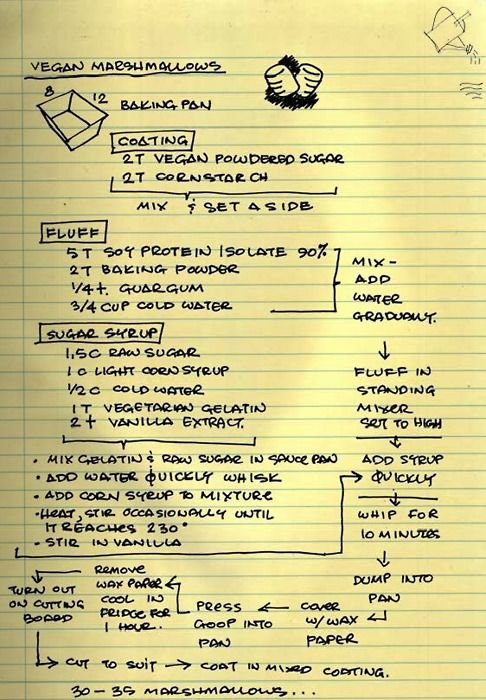 VEGAN MARSHMALLOWS
8
12
BAKING PAN
COATING
2T VEGAN POWDERED SUGAR
2T CORNSTARCH
MIX & SET ASIDE
FLUFF
5T SOY PROTEIN ISOLATE 90%
2T BAKING POWDER
1/4 t. GUARGUM
3/4 CUP COLD WATER
MIX -
ADD
WATER
GRADUALLY.
SUGAR SYRUP
1,5 C RAW SUGAR
1 C LIGHT CORN SYRUP
1/2 C COLD WATER
1T VEGETARIAN GELATIN
2 t VANILLA EXTRACT.
FLUFF IN
STANDING
MIXER
SET TO HIGH
• MIX GELATIN & RAW SUGAR IN SAUCE PAN
• ADD WATER & QUICKLY WHISK
• ADD CORN SYRUP TO MIXTURE
• HEAT, STIR OCCASIONALLY UNTIL
IT REACHES 230°
• STIR IN VANILLA
ADD SYRUP
QUICKLY
WHIP FOR
10 MINUTES
DUMP INTO
PAN
COVER
W/WAX
PAPER
PRESS
GOOP INTO
PAN
REMOVE
WAX PAPER
COOL IN
FRIDGE FOR
1 HOUR.
TURN OUT
ON CUTTING
BOARD
CUT TO SUIT → COAT IN MIXED COATING.
30-35 MARSHMALLOWS...